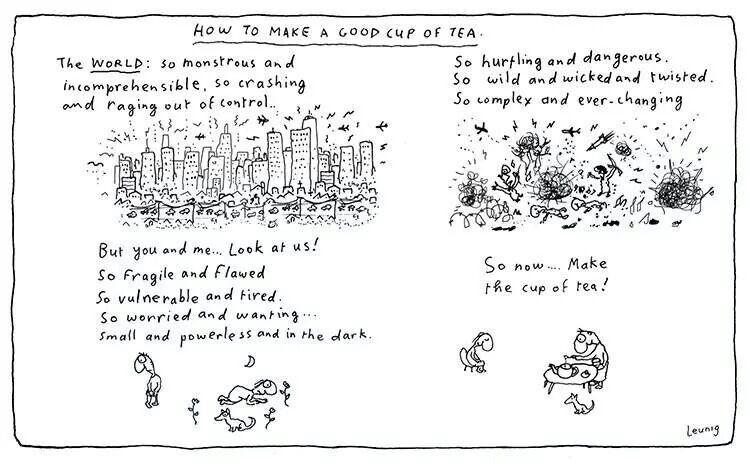 HOW TO MAKE A GOOD CUP OF TEA.
The WORLD: so monstrous and
incomprehensible, so crashing
and raging out of control..
But you and me... Look at us!
So Fragile and Flawed
So vulnerable and tired.
So worried and wanting...
small and powerless and in the dark.
So hurtling and dangerous.
So wild and wicked and twisted.
So complex and ever-changing
So now.... Make
the cup of tea!
Leunig